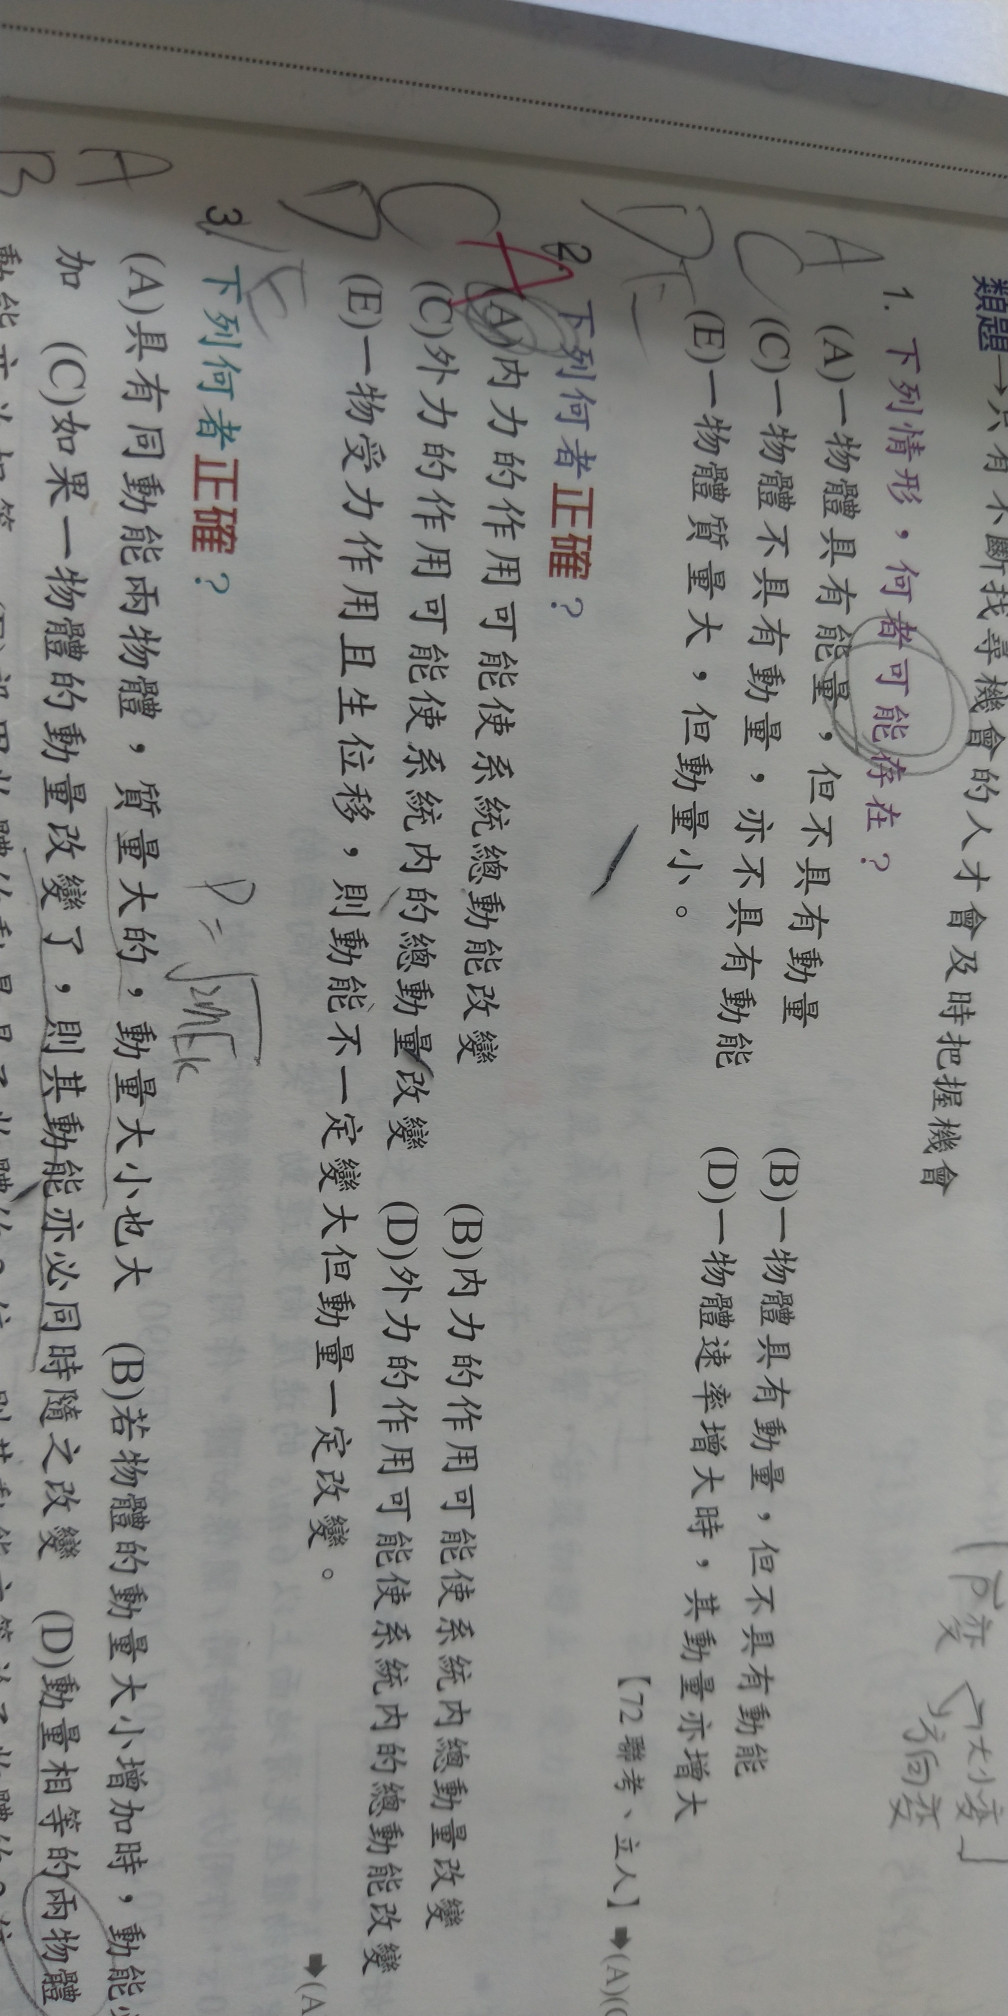 類題→只有不斷找尋機會的人才會及時把握機會
p變
大小變
方向變
1. 下列情形，何者可能存在？
(A)一物體具有能量，但不具有動量 (B)一物體具有動量，但不具有動能
(C)一物體不具有動量，亦不具有動能 (D)一物體速率增大時，其動量亦增大
(E)一物體質量大，但動量小。
【72聯考、立人】➡(A)(C
A
C
D
E
2. 下列何者正確？
(A)內力的作用可能使系統總動能改變 (B)內力的作用可能使系統內總動量改變
(C)外力的作用可能使系統內的總動量改變 (D)外力的作用可能使系統內的總動能改變
(E)一物受力作用且生位移，則動能不一定變大但動量一定改變。
➡(A
A
C
D
E
3. 下列何者正確？
P=√2mEk
(A)具有同動能兩物體，質量大的，動量大小也大 (B)若物體的動量大小增加時，動能
加 (C)如果一物體的動量改變了，則其動能亦必同時隨之改變 (D)動量相等的兩物體
A
B